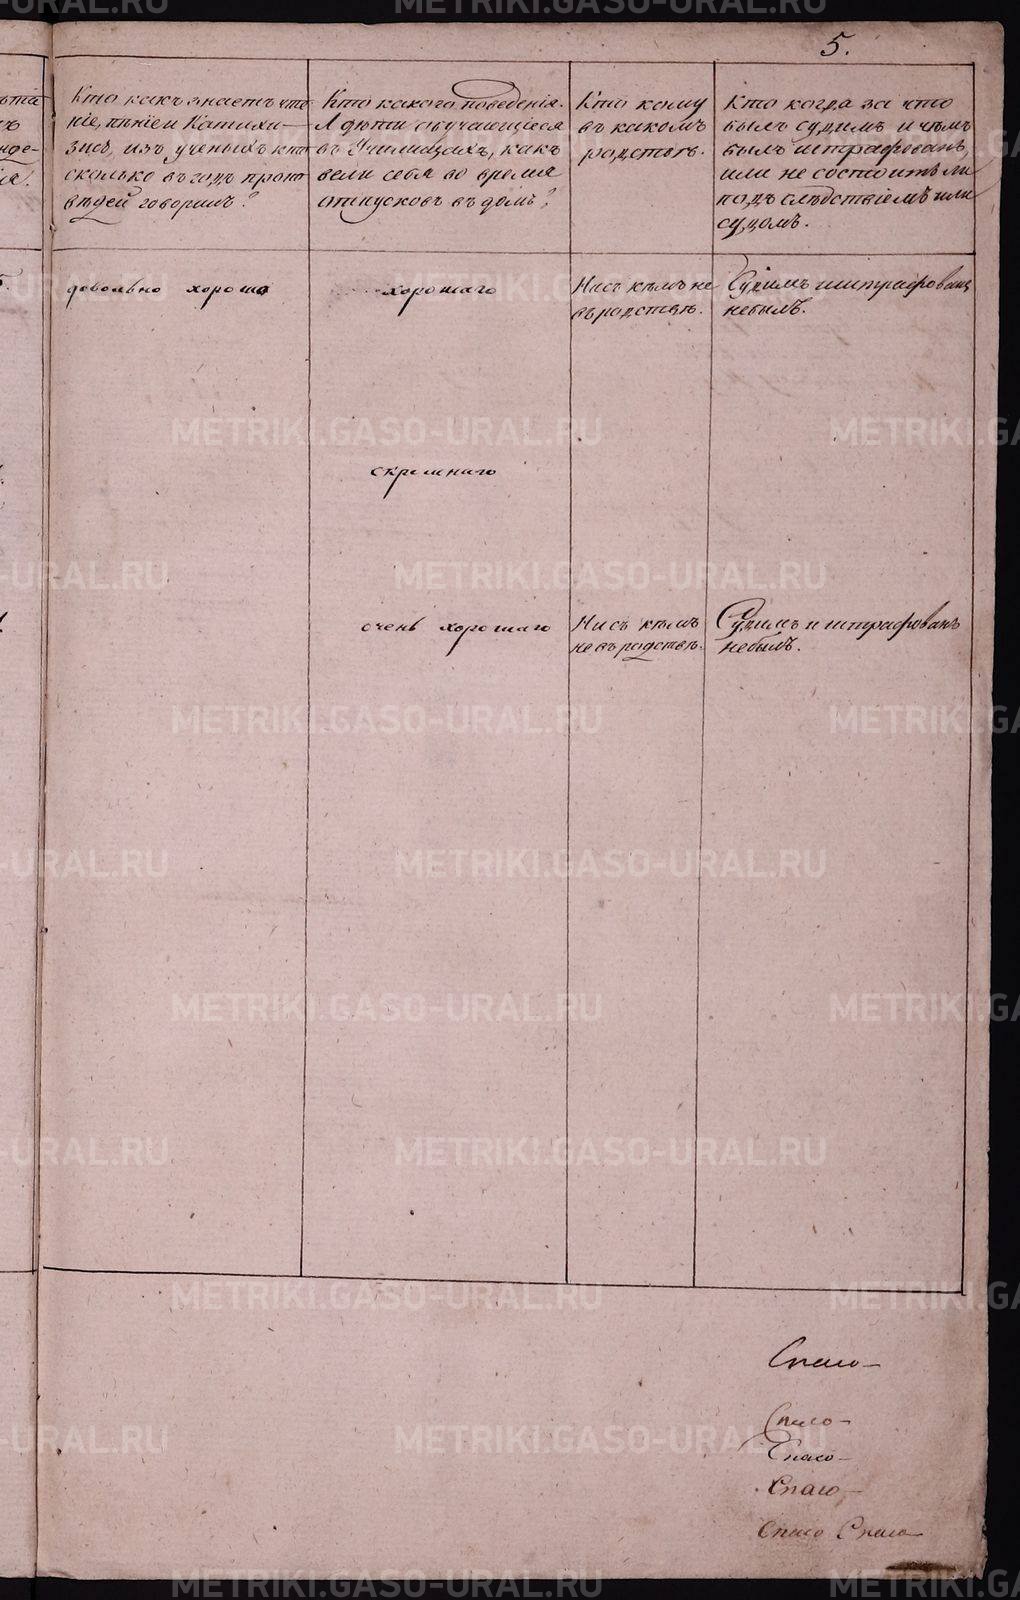 5.
Кто какъ знаетъ чте-
ніе, пѣніе и Катихи-
зисъ, изъ ученыхъ кто
сколько въ годъ пропо-
вѣдей говоритъ?
Кто какого поведенія.
А дѣти обучающіеся
въ Училищахъ, какъ
вели себя во время
отпусковъ въ домъ?
Кто кому
въ какомъ
родствѣ.
Кто когда за что
былъ судимъ и чѣмъ
былъ штрафованъ,
или не состоитъ ли
подъ слѣдствіемъ или
судомъ.
довольно хорошо
хорошаго
Ни съ кѣмъ не
въ родствѣ.
Судимъ и штрафованъ
небылъ.
скромнаго
очень хорошаго
Ни съ кѣмъ
не въ родствѣ.
Судимъ и штрафованъ
небылъ.
Спасо-
Спасо-
Спасо-
Спасо-
Спасо Спасо
METRIKI.GASO-URAL.RU